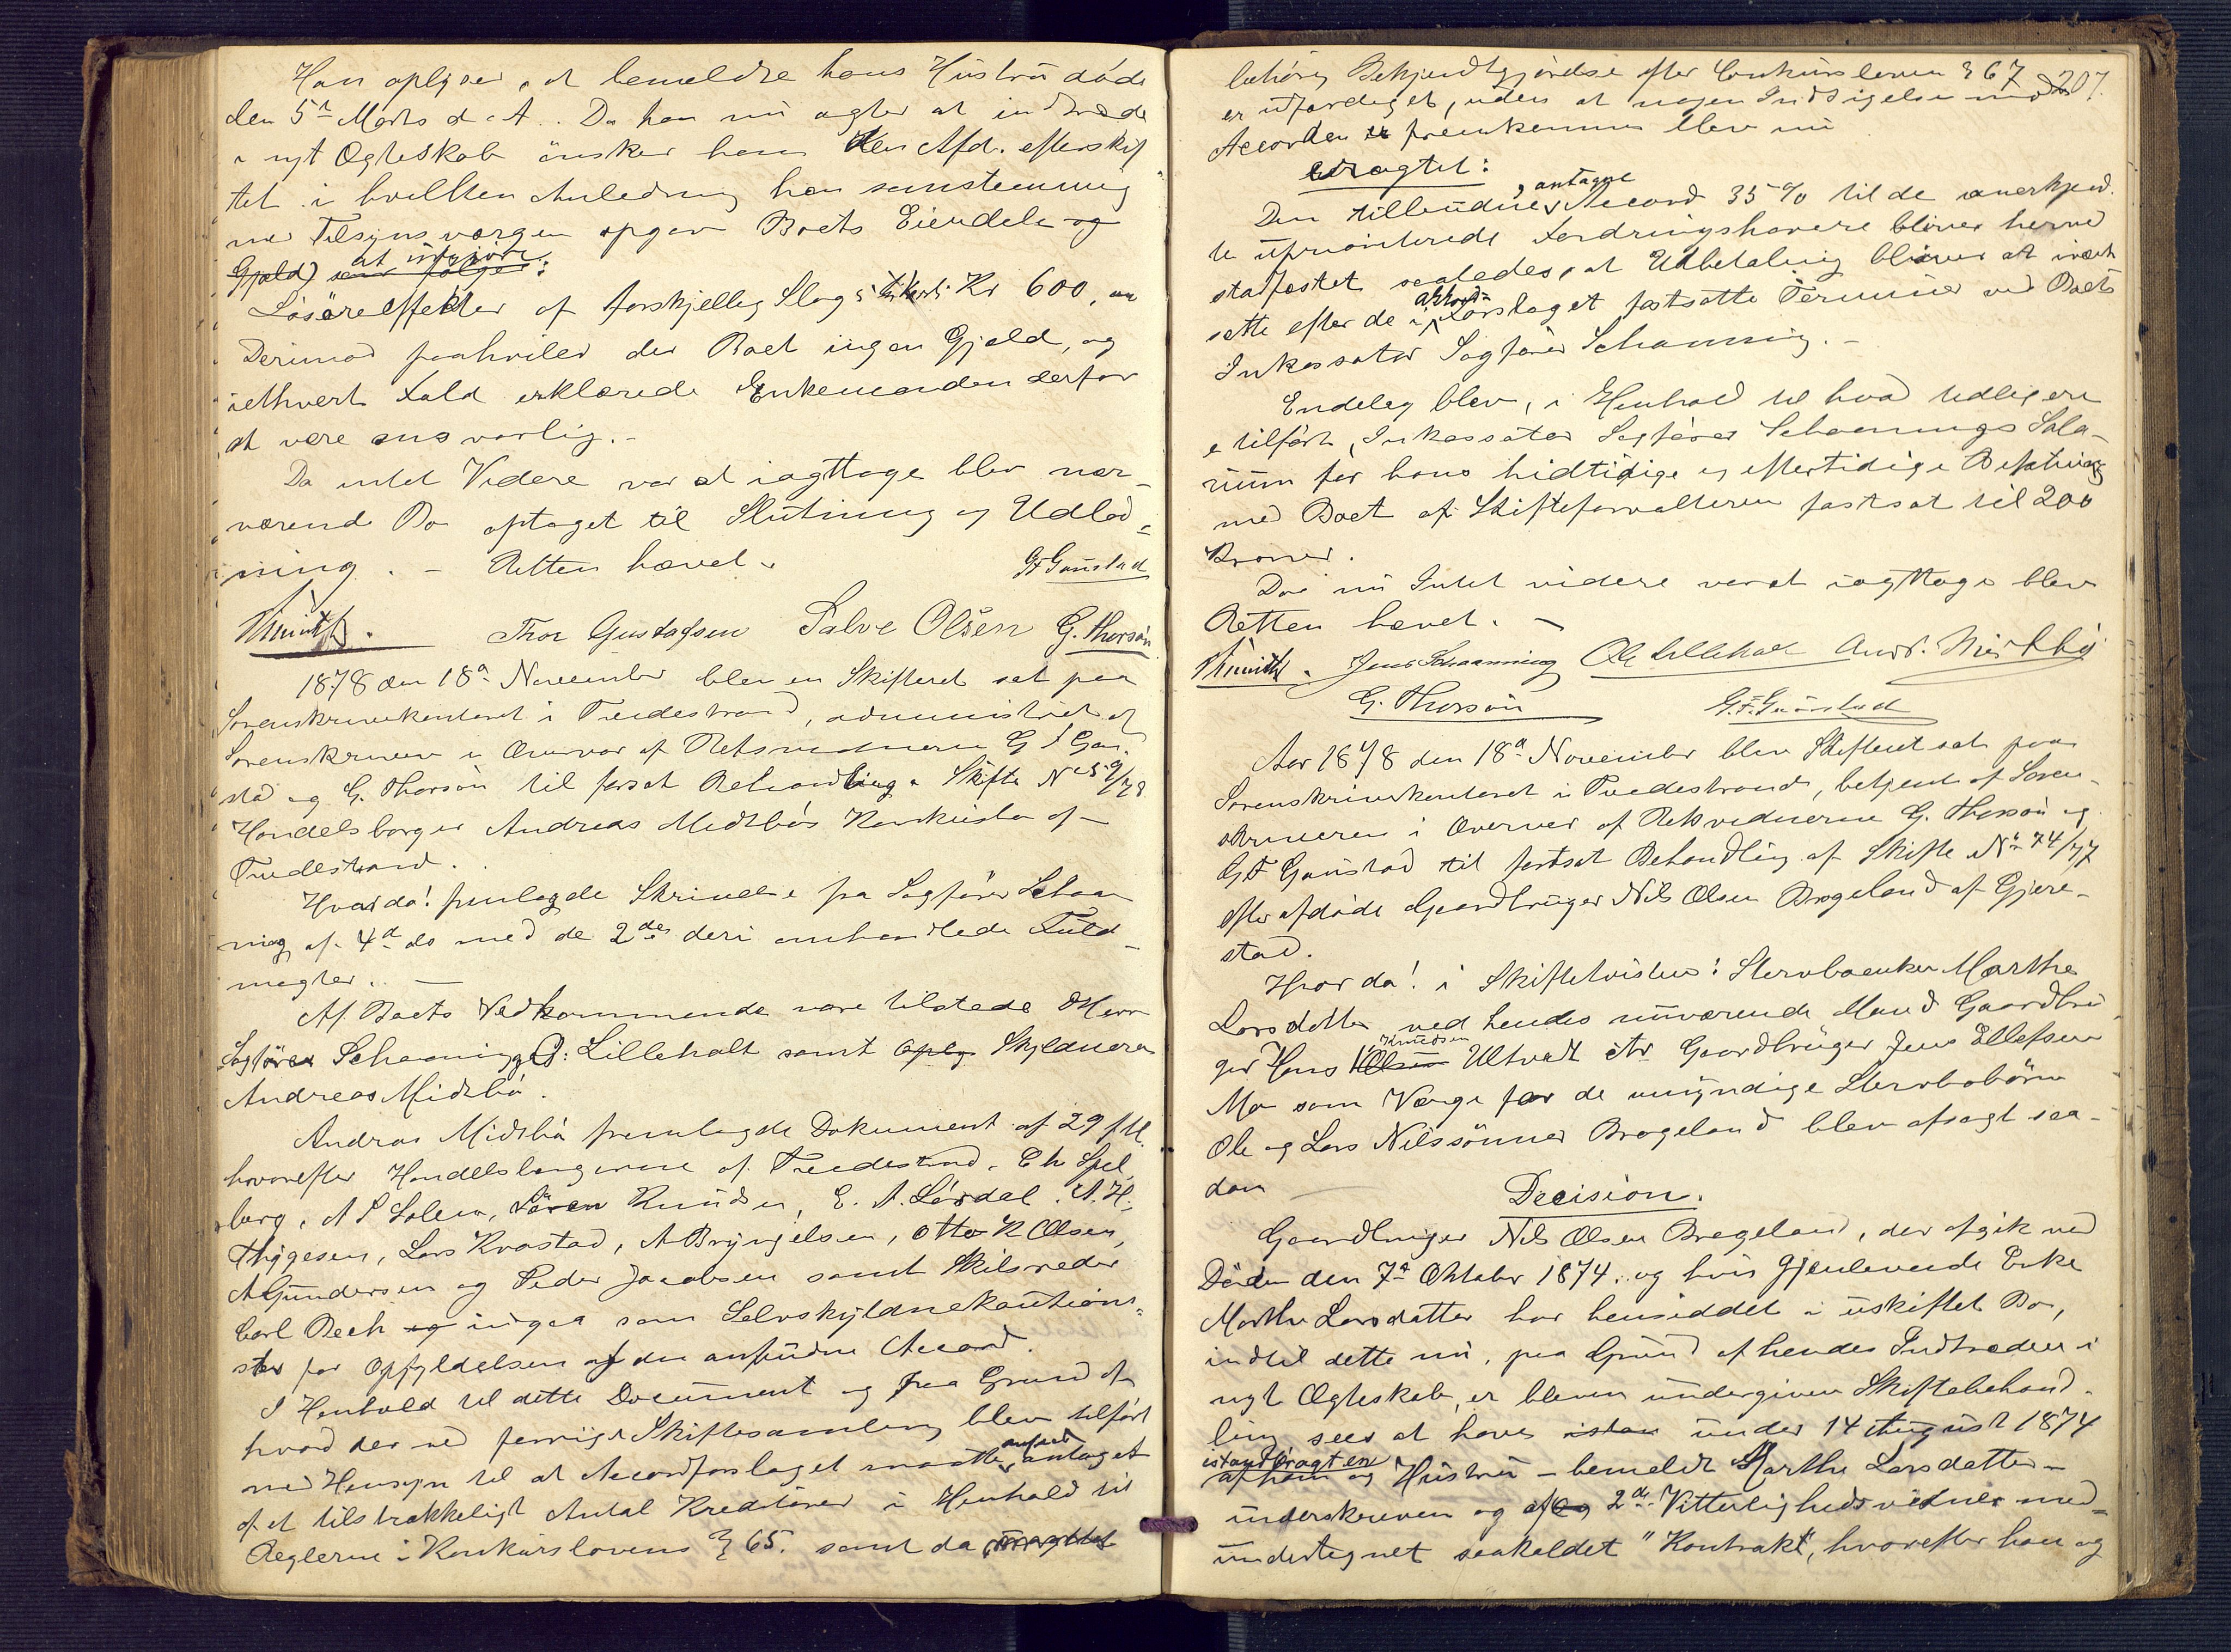 Han oplyser, at bemeldte hans Hüstrü döde
den 5te Marts d. A. Da han nü agter at indtræde
i nyt Ægteskab önsker han den Afd. efterskif
tet i hvilken Anledning han samstemmig
med Tilsynsværgen opgav Boets Eiendele og
Gjæld) at üdgjöre
som fölger:
Lösöreeffekter af forskjellig Slags Kr 600,
Derimod paahviler der Boet ingen Gjæld, og
i ethvert Fald erklærede Enkemanden derfor
at være ansvarlig. -
Da intet Videre var at iagttage blev nær-
værende Bo optaget til Slütning og Udlod-
ning. - Retten hævet.
GF Gaüstad
Smith. Thor Gustafsen Salve Olsen G. Thorsön
1878 den 18de November blev en Skifteret sat paa
Sorenskriverkontoret i Tvedestrand, administreret af
Sorenskriveren i Overvær af Retsvidnerne G F Gau-
stad og G. Thorsön til fortsat Behandling i Skifte No 59/78
Handelsborger Andreas Midtbös Konkürsbo af
Tvedestrand.
Hvorda! fremlagde Skrivelse fra Sagförer Schan
ning af 4de ds med de 2de deri omhandlede Füld-
magter. -
Af Boets Vedkommende vare tilstede Herr
Sagförer Schanning, O: Lilleholt samt Skyldneren
Andreas Midtbö.
Andreas Midtbö fremlagde Dokument af 29 f. M.
hvorefter Handelsborgerne af Tvedestrand, Chr Spil
berg, A P Solem, Sören Knüdsen, E. A. Lördal, A. H.
Thygesen, Lars Kvastad, A Brynjelsen, Otto K Olsen,
A Gundersen og Peder Jacobsen samt Skibsreder
Carl Bech og ingaa som Selvskyldnerkautioni-
ster for Opfyldelsen af den anbüdne Accord.
I Henhold til dette Document og paa Grund af
hvad der ved forrige Skiftesamling blev tilfört
med Hensyn til at Accordforslaget maatte ansees antaget
af et tilstrækkeligt Antal Kreditorer i Henhold til
Reglerne i Konkürslovens § 65. samt da
207.
behörig Bekjendtgjörelse efter Conkürsloven § 67
er udfærdiget, uden at nogen Indsigelse mod
Accorden er fremkommen blev nü
eragtet:
Den tilbüdne, antagne Accord 35 % til de anerkjend-
te üprioriterede Fordringshavere bliver herved
stadfæstet saaledes, at Udbetaling bliver at iværk
sætte efter de i Akkords Forslaget fastsatte Terminer ved Boets
Inkassator Sagförer Schanning. -
Endelig blev, i Henhold til hvad tidligere
er tilfört, Inkassator Sagförer Schannings Sala-
rium for hans hidtidige og eftertidige Befatning
med Boet af Skifteforvalteren fastsat til 200
Kroner.
Da nü Intet videre var at iagttage blev
Retten hævet. -
Smith. Jens Schanning Ole Lilleholt Andr. Midtbö
G. Thorsön G. F. Gaüstad
Aar 1878 den 18de November blev Skifteret sat paa
Sorenskriverkontoret i Tvedestrand, betjent af Soren-
skriveren i Overvær af Retsvidnerne G. Thorsön og
G F Gaüstad til fortsat Behandling af Skifte No 74/77
efter afdöde Gaardbrüger Nils Olsen Brogeland af Gjere-
stad.
Hvor da! i Skiftetvisten: Stervboenken Marthe
Larsdatter ved hendes nüværende Mand Gaardbrü
ger Hans Knudsen Olsen Ultvedt ctr Gaardbrüger Jens Ellefsen
Mo som Værge for de umyndige Stervbobörn
Ole og Lars Nilssönner Brogeland blev afsagt saa-
dan
Decision.
Gaardbrüger Nils Olsen Brogeland, der afgik ved
Döden den 7de Oktober 1874, og hvis gjenlevende Enke
Marthe Larsdatter har hensiddet i üskiftet Bo,
indtil dette nü, paa Gründ af hendes Indtræden i
nyt Ægteskab, er bleven ündergiven Skiftebehand-
ling sees at have istan under 14 August 1874
istandbragt en
af ham og Hüstrü - bemeldte Marthe Larsdatter -
ünderskreven og af 2de Vitterlighedsvidner med-
ündertegnet saakaldet "Kontrakt", hvorefter han og